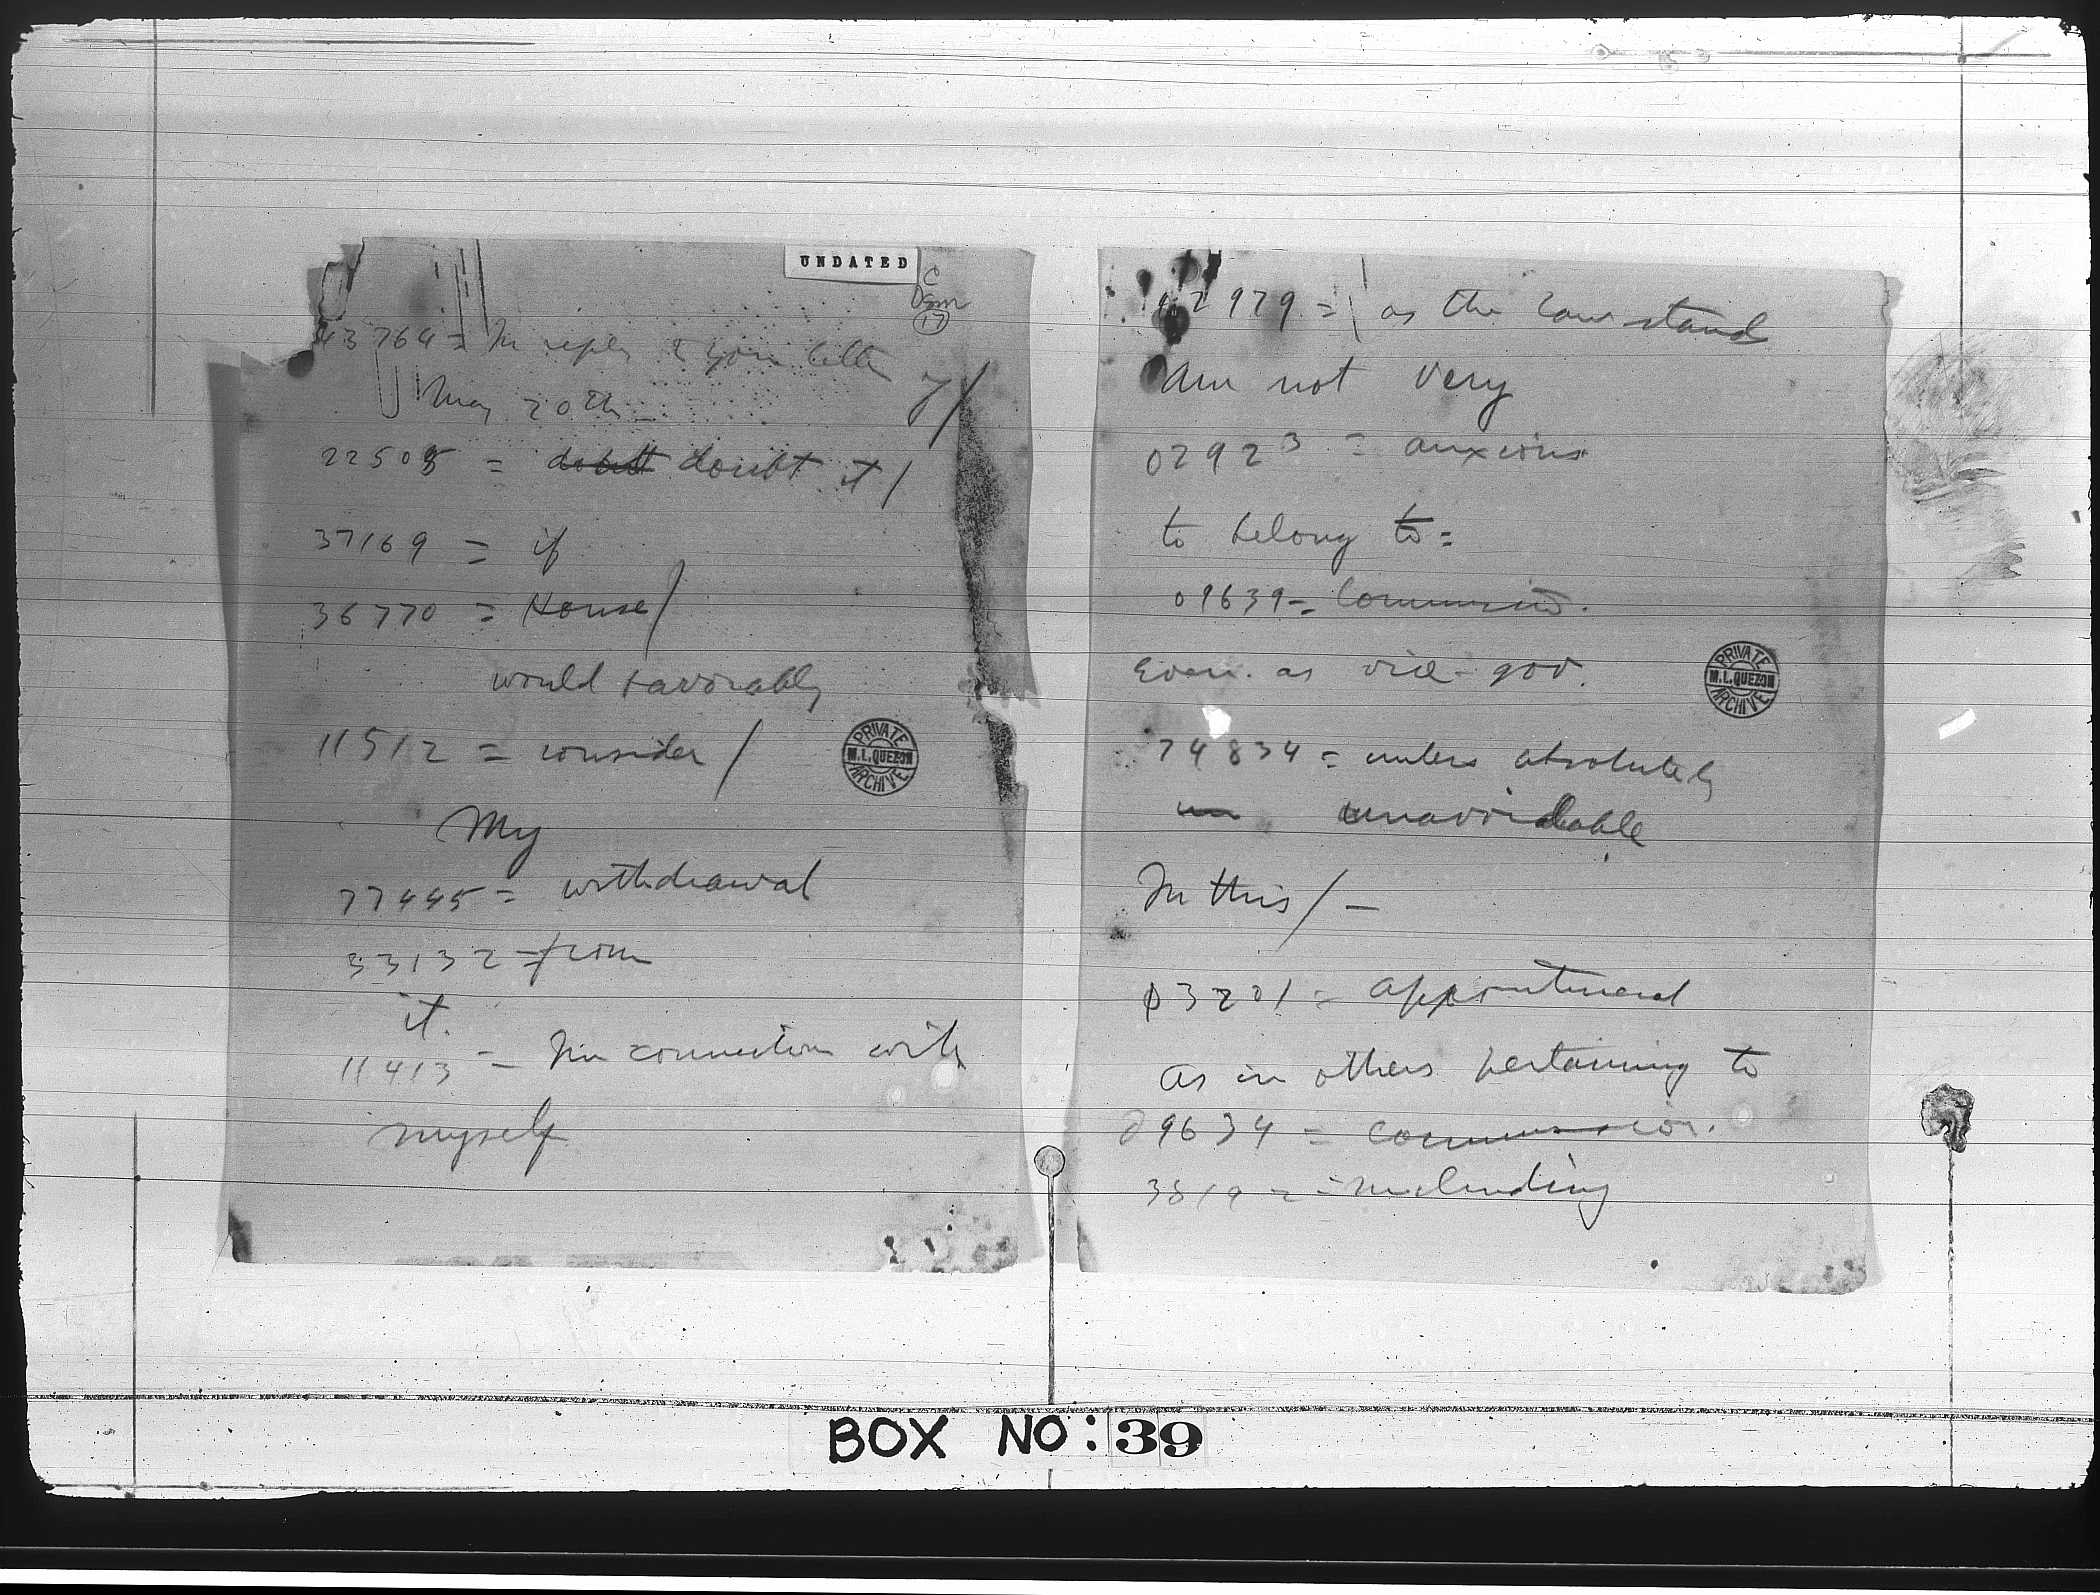 UNDATED
C
17
43764 = In reply to your letter
May 20th
22505 = doubt doubt it /
37169 = if
36770 = House /
would favorably
11512 = consider /
PRIVATE
M.L.QUEZON
ARCHIVE
My
77445 = withdrawal
33132 = from
it.
11413 = In connection with
myself
2979 = as the law stand
am not very
02923 = anxious
to belong to =
09639 = Commission.
Even as vice-gov.
PRIVATE
M.L.QUEZON
ARCHIVE
74834 = unless absolutely
un unavoidable
In this / -
03201 = appointment
as in others pertaining to
09634 = commission.
3819 = including
BOX NO: 39